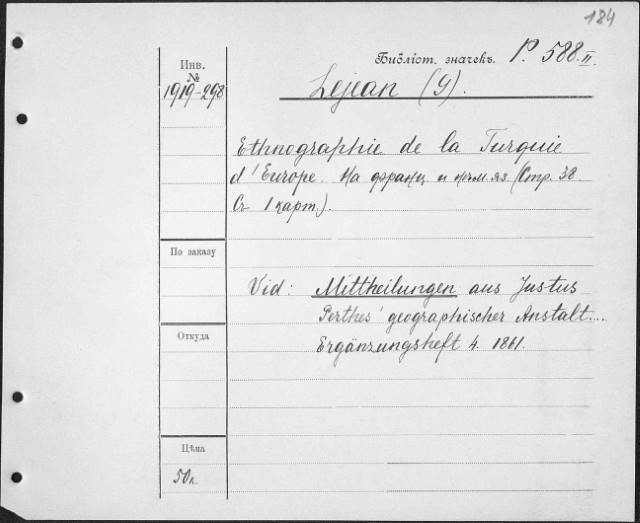 184
Библіот. значекъ. P. 588.II.
Инв.
№
1919-298
Lejean (G).
Ethnographie de la Turquie
d'Europe. На франц. и нѣм. яз. (Стр. 38.
Съ 1 карт.).
По заказу
Vid: Mittheilungen aus Justus
Perthes' geographischer Anstalt....
Откуда
Ergänzungsheft 4. 1861.
Цѣна
50к.